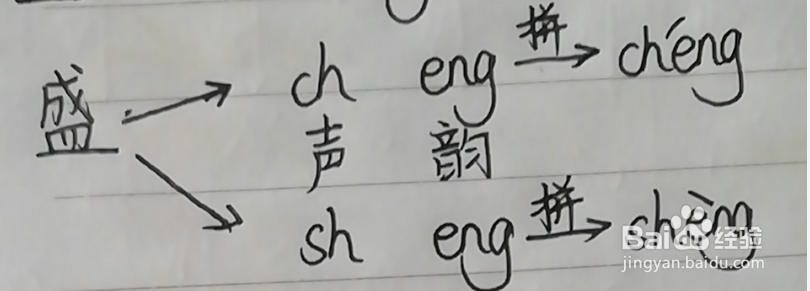 ch eng 拼 chéng
盛
声 韵
sh eng 拼 shèng
Baidu 经验
jingyan.baidu.com